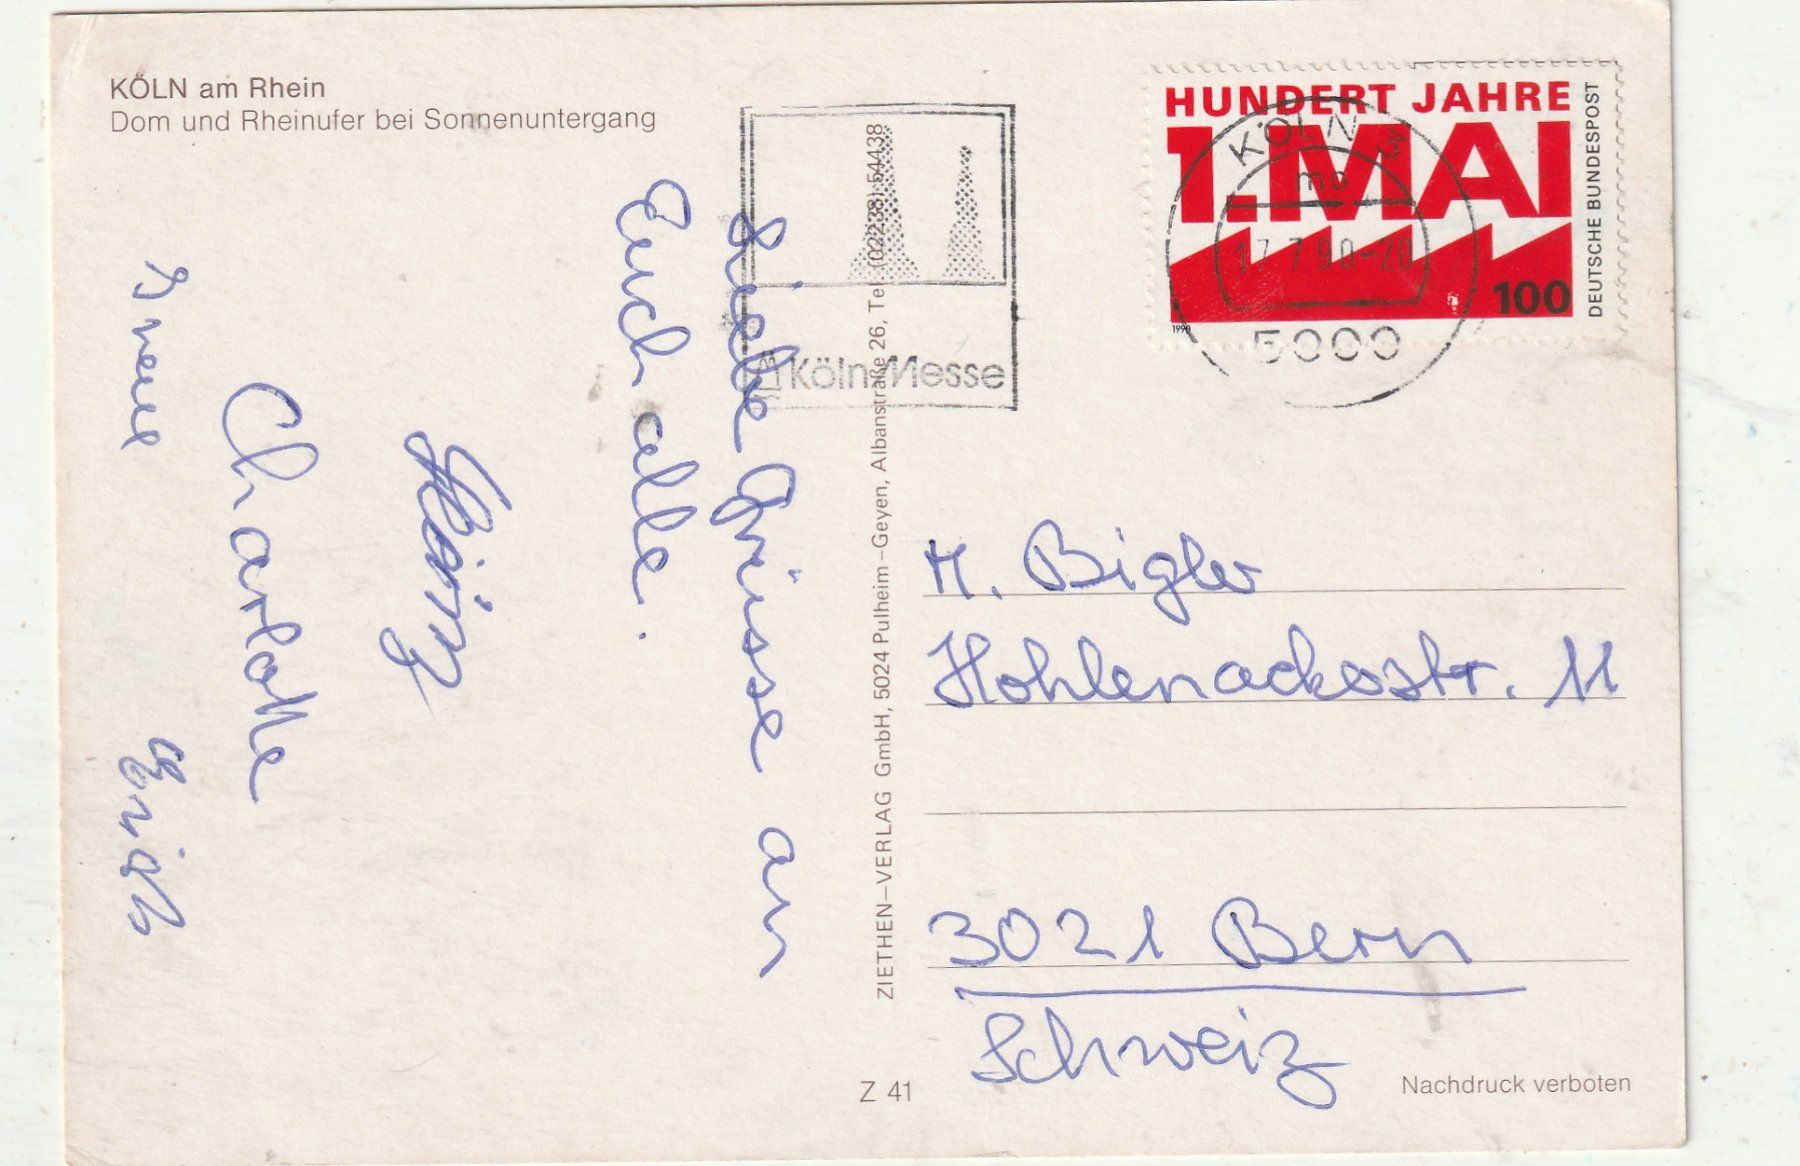 KÖLN am Rhein
Dom und Rheinufer bei Sonnenuntergang
Liebe Grüsse an
Euch alle.
Heinz
Charlotte
Irene
Erich
ZIETHEN-VERLAG GmbH, 5024 Pulheim-Geyen, Albanstraße 26, Tel. (02238) 54438
KölnMesse
HUNDERT JAHRE
1. MAI
100
1990
DEUTSCHE BUNDESPOST
KÖLN 3
mo
17.7.90-20
5000
M. Bigler
Hohlenackerstr. 11
3021 Bern
Schweiz
Z 41
Nachdruck verboten